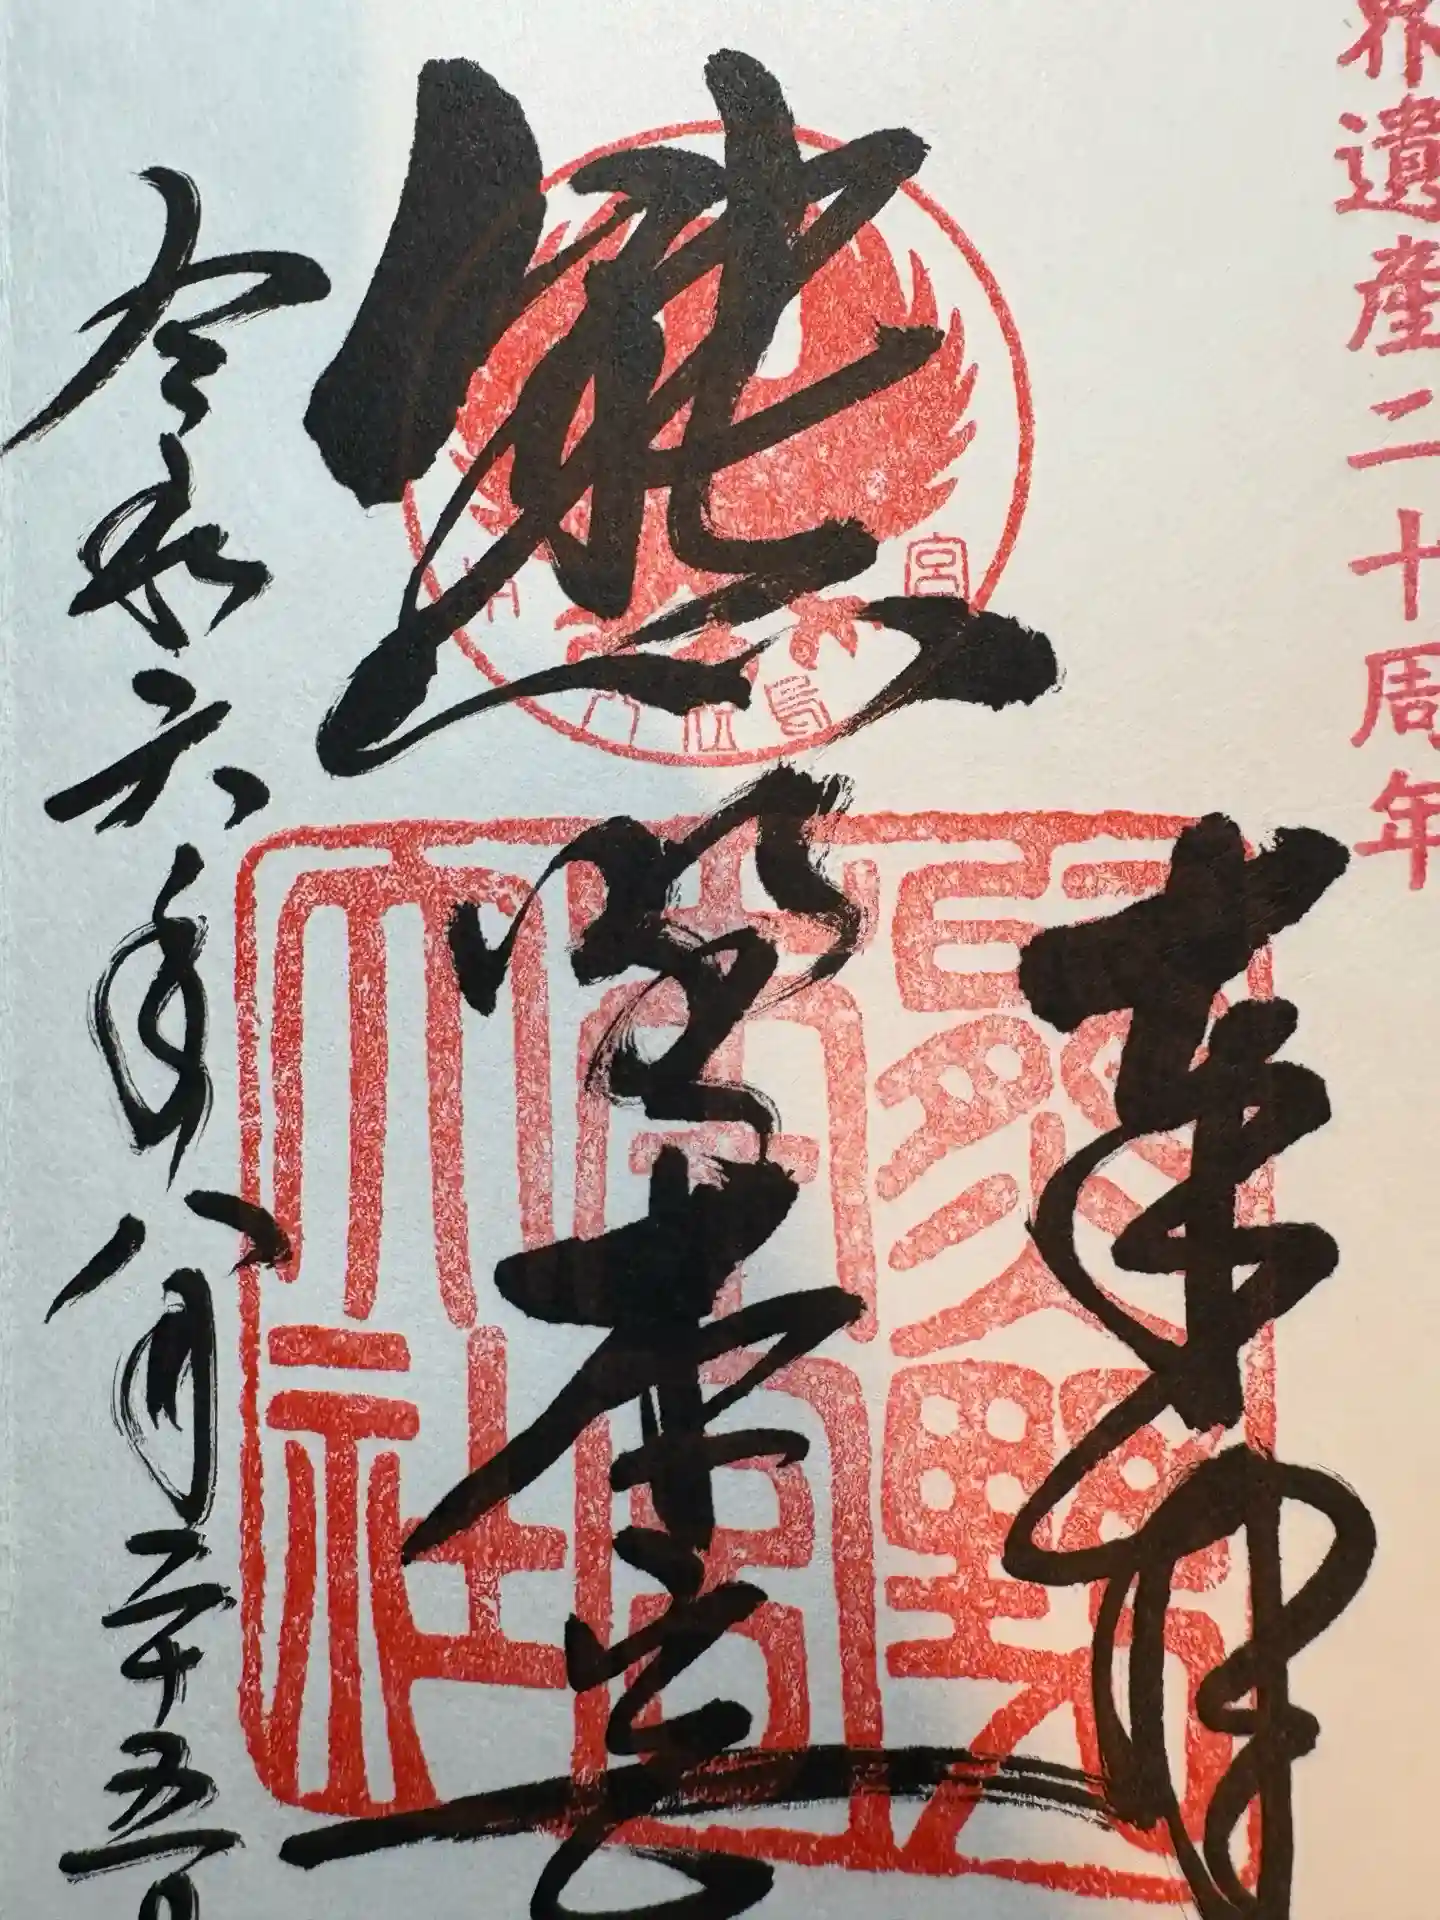 界遺産二十周年
奉拝
熊野本宮
令和六年八月二十五日
熊野
本宮
大社